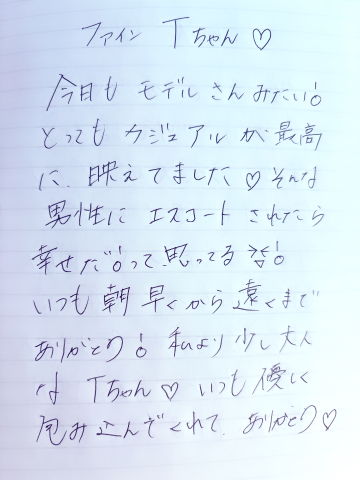 ファイン Tちゃん♡
今日も モデルさんみたい!
とっても カジュアルが 最高
に、映えてました♡そんな
男性に エスコート されたら
幸せだ!って思ってる !
いつも 朝早くから 遠くまで
ありがとう! 私より 少し大人
な Tちゃん♡ いつも 優しく
包み込んでくれて、ありがとう♡